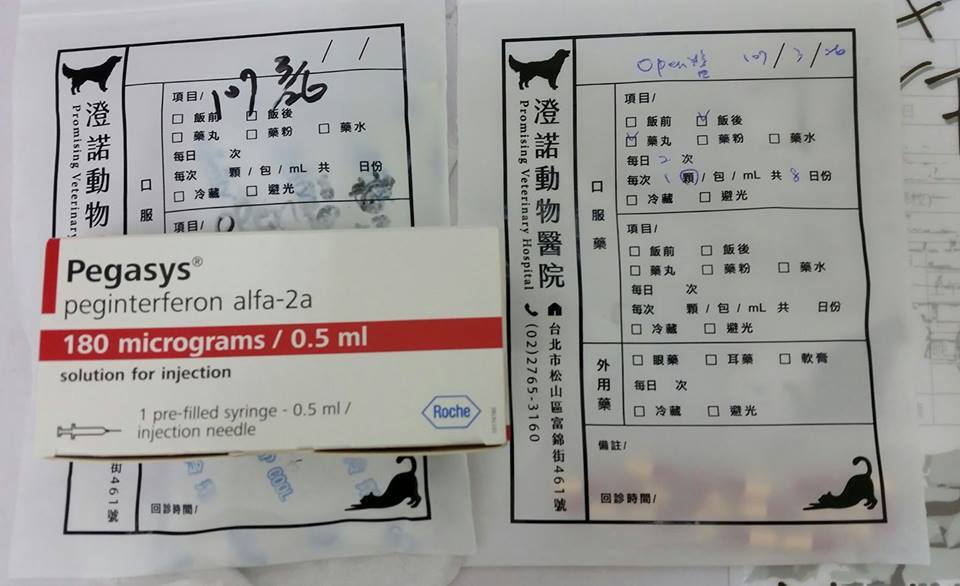 107 3/26 / /
澄諾動物
Promising Veterinary
口服
項目/
□ 飯前 □ 飯後
□ 藥丸 □ 藥粉 □ 藥水
每日 次
每次 顆 / 包 / mL 共 日份
□ 冷藏 □ 避光
項目/
Pegasys®
peginterferon alfa-2a
180 micrograms / 0.5 ml
solution for injection
1 pre-filled syringe - 0.5 ml /
injection needle
Roche
COOL
街461號
回診時間/
Open 107/3/26
澄諾動物醫院
Promising Veterinary Hospital
(02)2765-3160
台北市松山區富錦街461號
口服藥
項目/
□ 飯前 ☑ 飯後
☑ 藥丸 □ 藥粉 □ 藥水
每日 2 次
每次 1 顆 / 包 / mL 共 8 日份
□ 冷藏 □ 避光
項目/
□ 飯前 □ 飯後
□ 藥丸 □ 藥粉 □ 藥水
每日 次
每次 顆 / 包 / mL 共 日份
□ 冷藏 □ 避光
外用藥
□ 眼藥 □ 耳藥 □ 軟膏
每日 次
□ 冷藏 □ 避光
備註/
回診時間/